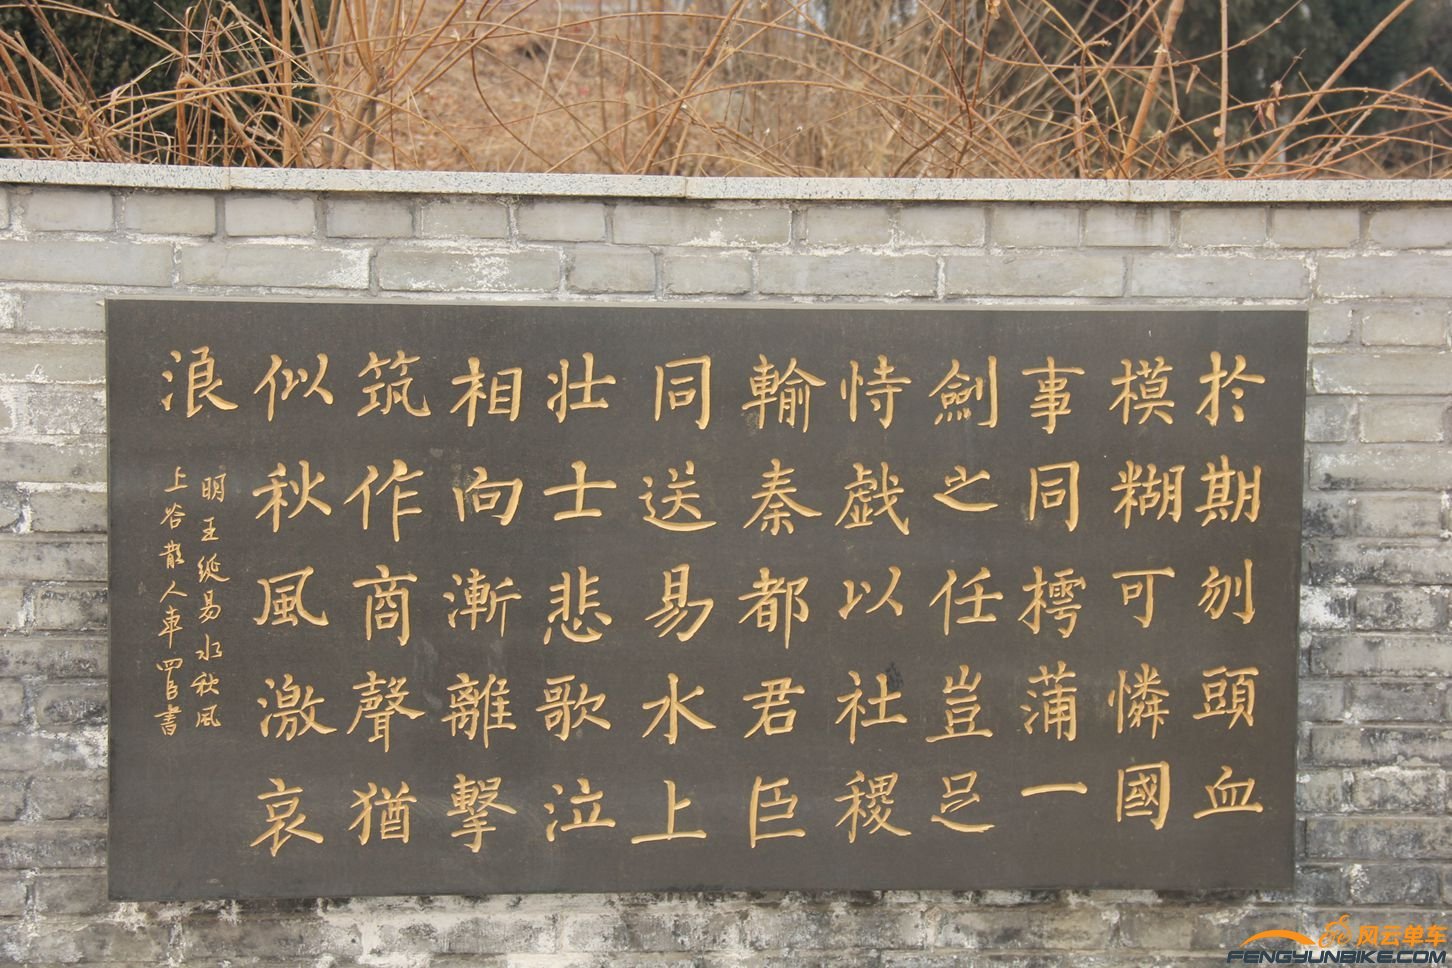 於期刎頭血
模糊可憐國
事同樗蒲一
劍之任豈足
恃戲以社稷
輸秦都君臣
同送易水上
壯士悲歌泣
相向漸離擊
筑作商聲猶
似秋風激哀
浪
明王綖易水秋風
上谷散人車四月書
风云单车
FENGYUNBIKE.COM